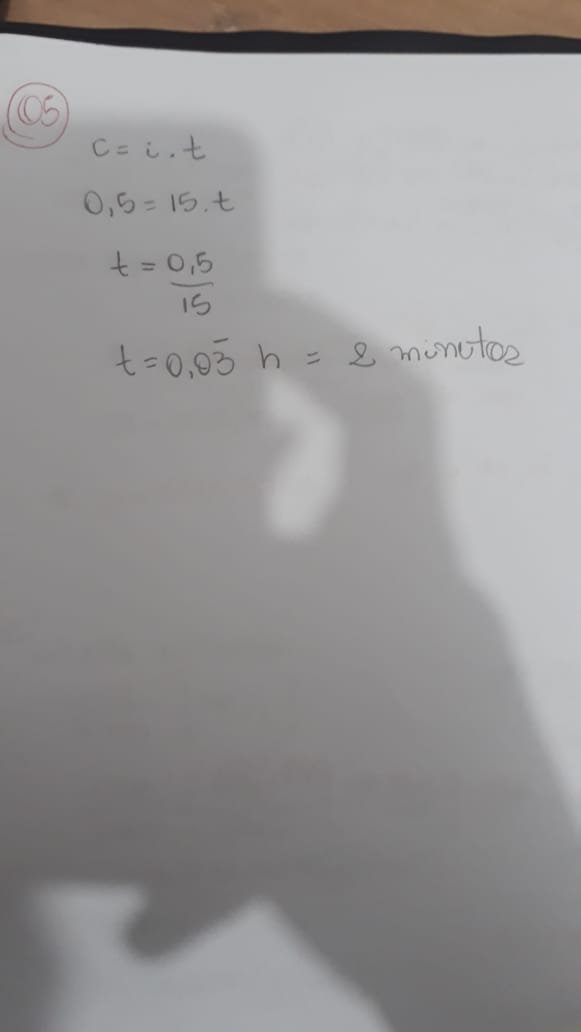 05
c = i . t
0,5 = 15 . t
t = 0,5
15
t = 0,03̅ h = 2 minutos